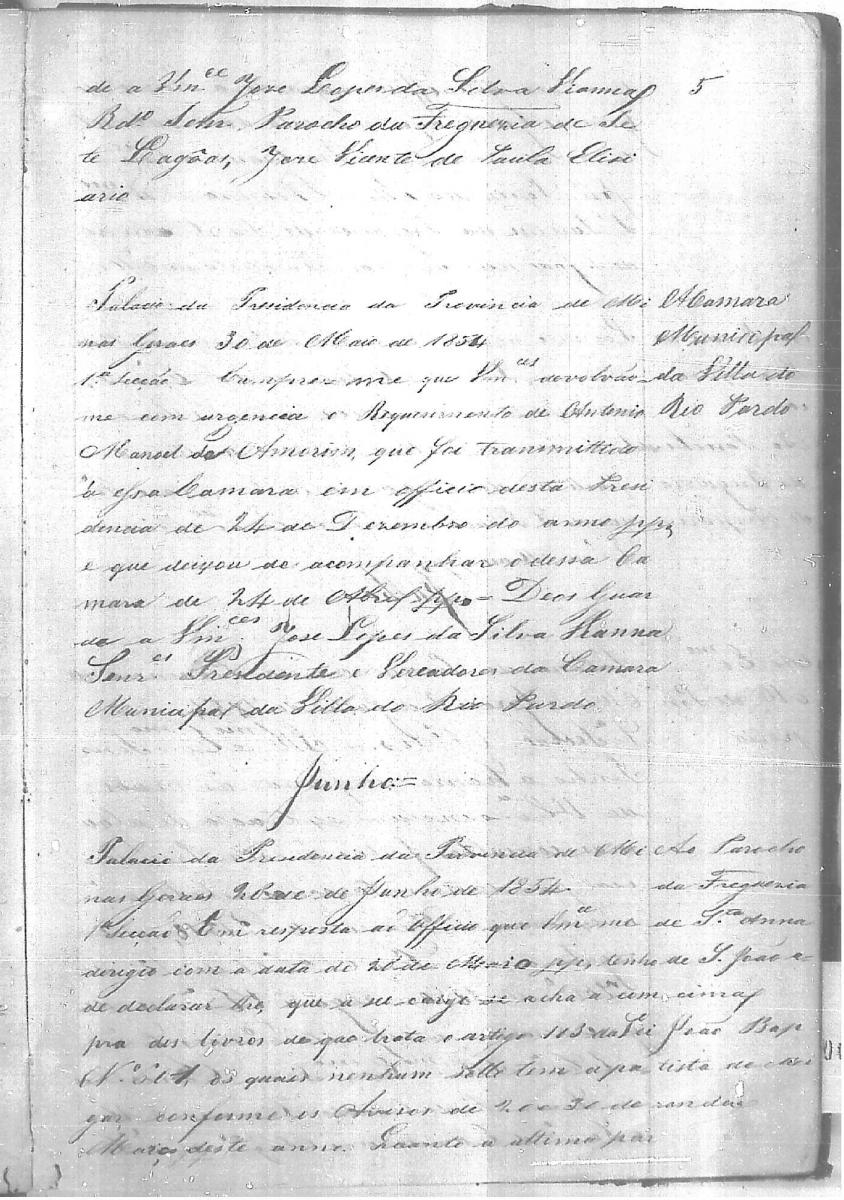 de a Vm.ce Jose Lopes da Silva Vianna 5
Rdº Senr Parocho da Freguezia de Se
te Lagôas, Jose Vicente de Paula Elisi
ario
Palacio da Presidencia da Provincia de Mi
nas Geraes 30 de Maio de 1854
1ª Secção Cumpre me que Vm.ces devolvão
me com urgencia o Requerimento de Antonio
Manoel de Amorim, que foi transmittido
à essa Camara em officio desta Presi
dencia de 24 de Dezembro do anno pp,
e que deixou de acompanhar o dessa Ca
mara de 24 de Abril pp. = Deos Guar
de a Vm.ces Jose Lopes da Silva Vianna
Senr.es Presidente e Vereadores da Camara
Municipal da Villa do Rio Pardo
A Camara
Municipal
da Villa do
Rio Pardo
Junho =
Palacio da Presidencia da Provincia de Mi
nas Geraes de Junho de 1854
1ª Secção Em resposta ao Officio que Vm.ce me
derigio com a data de de Maio pp, tenho
de declarar lhe, que a seo cargo se acha a com
pra dos livros de que trata o artigo 103 da Lei
Nº 601, os quais nenhum sello tem a pa
gar conforme os Avisos de 2 e 30 de
Março deste anno. Quanto a ultima par
Ao Parocho
da Freguezia
de S.ta Anna
de S. João a
cima
João Bap
tista de